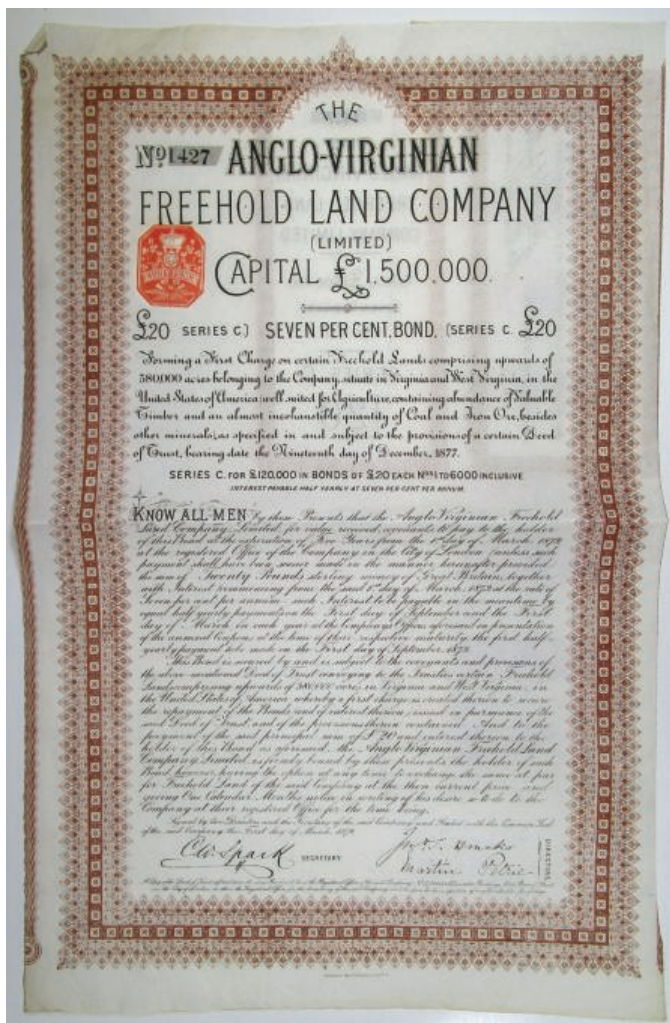 THE
No 1427 ANGLO-VIRGINIAN
FREEHOLD LAND COMPANY
(LIMITED)
CAPITAL £1,500,000.
£20 SERIES C.) SEVEN PER CENT. BOND. (SERIES C. £20
Forming a First Charge on certain Freehold Lands comprising upwards of
580,000 acres belonging to the Company, situate in Virginia and West Virginia, in the
United States of America; well suited for Agriculture, containing abundance of Valuable
Timber and an almost inexhaustible quantity of Coal and Iron Ore, besides
other minerals, as specified in and subject to the provisions of a certain Deed
of Trust, bearing date the Nineteenth day of December, 1877.
SERIES C. FOR £120,000 IN BONDS OF £20 EACH Nos 1 TO 6000 INCLUSIVE
INTEREST PAYABLE HALF YEARLY AT SEVEN PER CENT PER ANNUM.
KNOW ALL MEN by these Presents that the Anglo Virginian Freehold
Land Company, Limited, for value received, covenants to pay to the holder
of this Bond at the expiration of Five Years from the 1st day of March, 1878
at the registered Office of the Company in the City of London (unless such
payment shall have been sooner made in the manner hereinafter provided)
the sum of Twenty Pounds sterling money of Great Britain, together
with Interest commencing from the 1st day of March, 1878 at the rate of
Seven per cent per annum such Interest to be payable in the meantime by
equal half yearly payments on the First day of September and the First
day of March in each year at the Company's Offices aforesaid on presentation
of the annexed Coupons at the time of their respective maturity the first half-
yearly payment to be made on the First day of September, 1878.
This Bond is secured by and is subject to the covenants and provisions of
the above mentioned Deed of Trust conveying to the Trustees certain Freehold
Lands comprising upwards of acres in Virginia and West Virginia, in
the United States of America whereby a first charge is created thereon to secure
the repayment of the Bonds and of interest thereon, issued in pursuance of the
said Deed of Trust and of the provisions therein contained. And to the
payment of the said principal sum of £20 and interest thereon to the
holder of this Bond as aforesaid, the Anglo Virginian Freehold Land
Company Limited is firmly bound by these presents, the holder of such
Bond however having the option at any time to exchange the same at par
for Freehold Land of the said Company at the then current price and
giving One Calendar Month's notice in writing of his desire so to do to the
Company at their registered Office for the time being.
Signed by two Directors and the Secretary of the said Company and Sealed with the Common Seal
of the said Company this First day of March, 1878.
C.W. Spark SECRETARY
Martin Petrie DIRECTORS